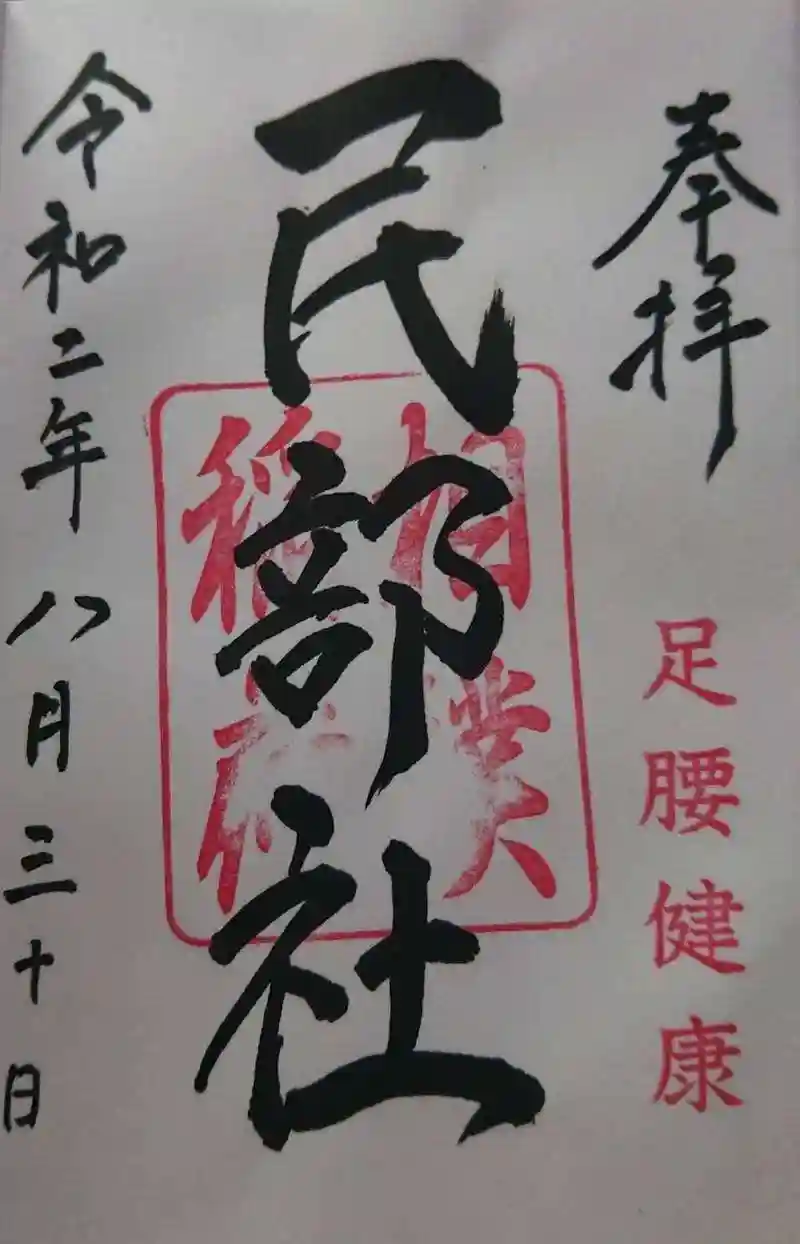 奉拝
足腰健康
民部社
相撲
稲荷
令和二年八月三十日